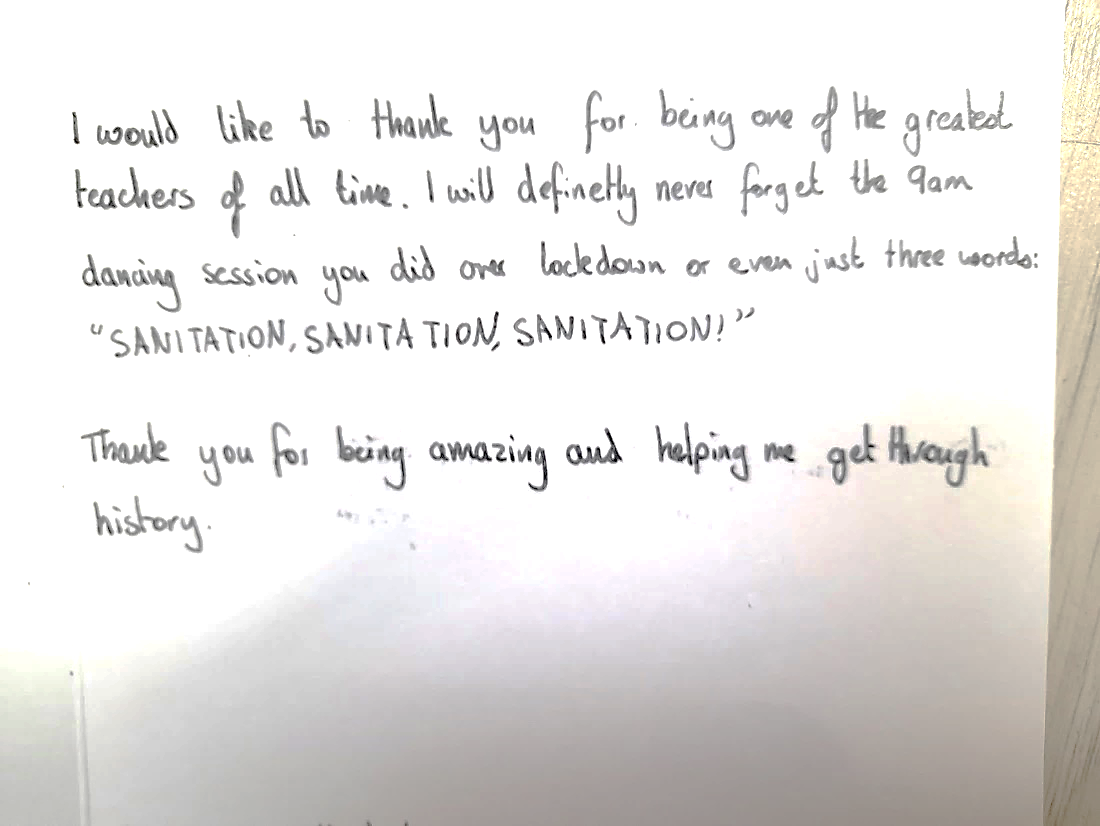 I would like to thank you for being one of the greatest
teachers of all time. I will definetly never forget the 9am
dancing session you did over lockdown or even just three words:
"SANITATION, SANITATION, SANITATION!"
Thank you for being amazing and helping me get through
history.